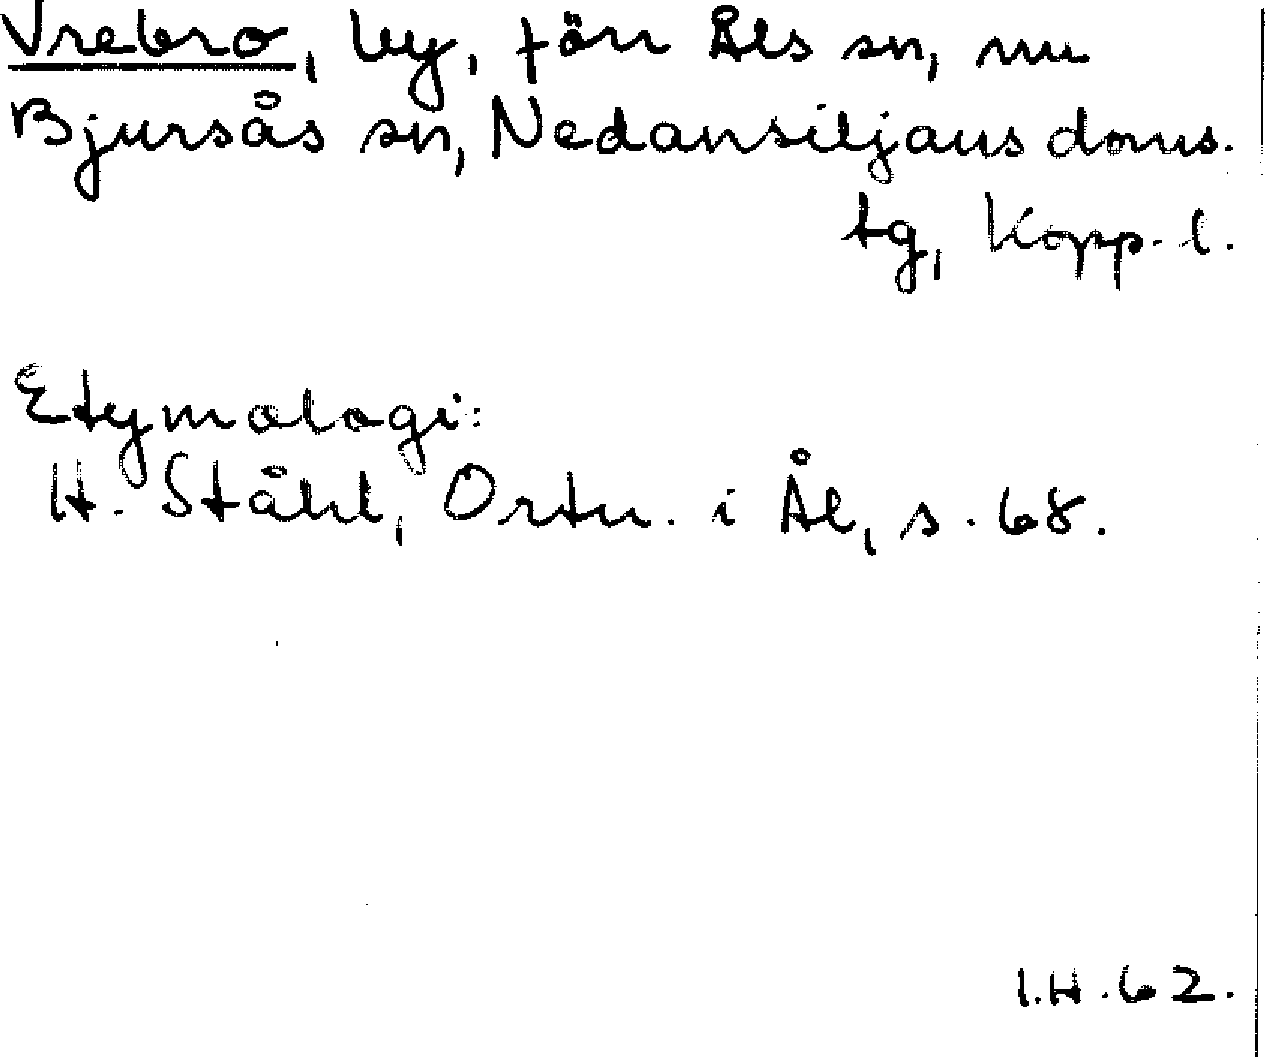 Vrebro, by, förr Åls sn, nu
Bjursås sn, Nedansiljans doms.
tg, Kopp. l.
Etymologi:
H. Ståhl, Ortn. i Ål, s. 68.
I.H. 62.